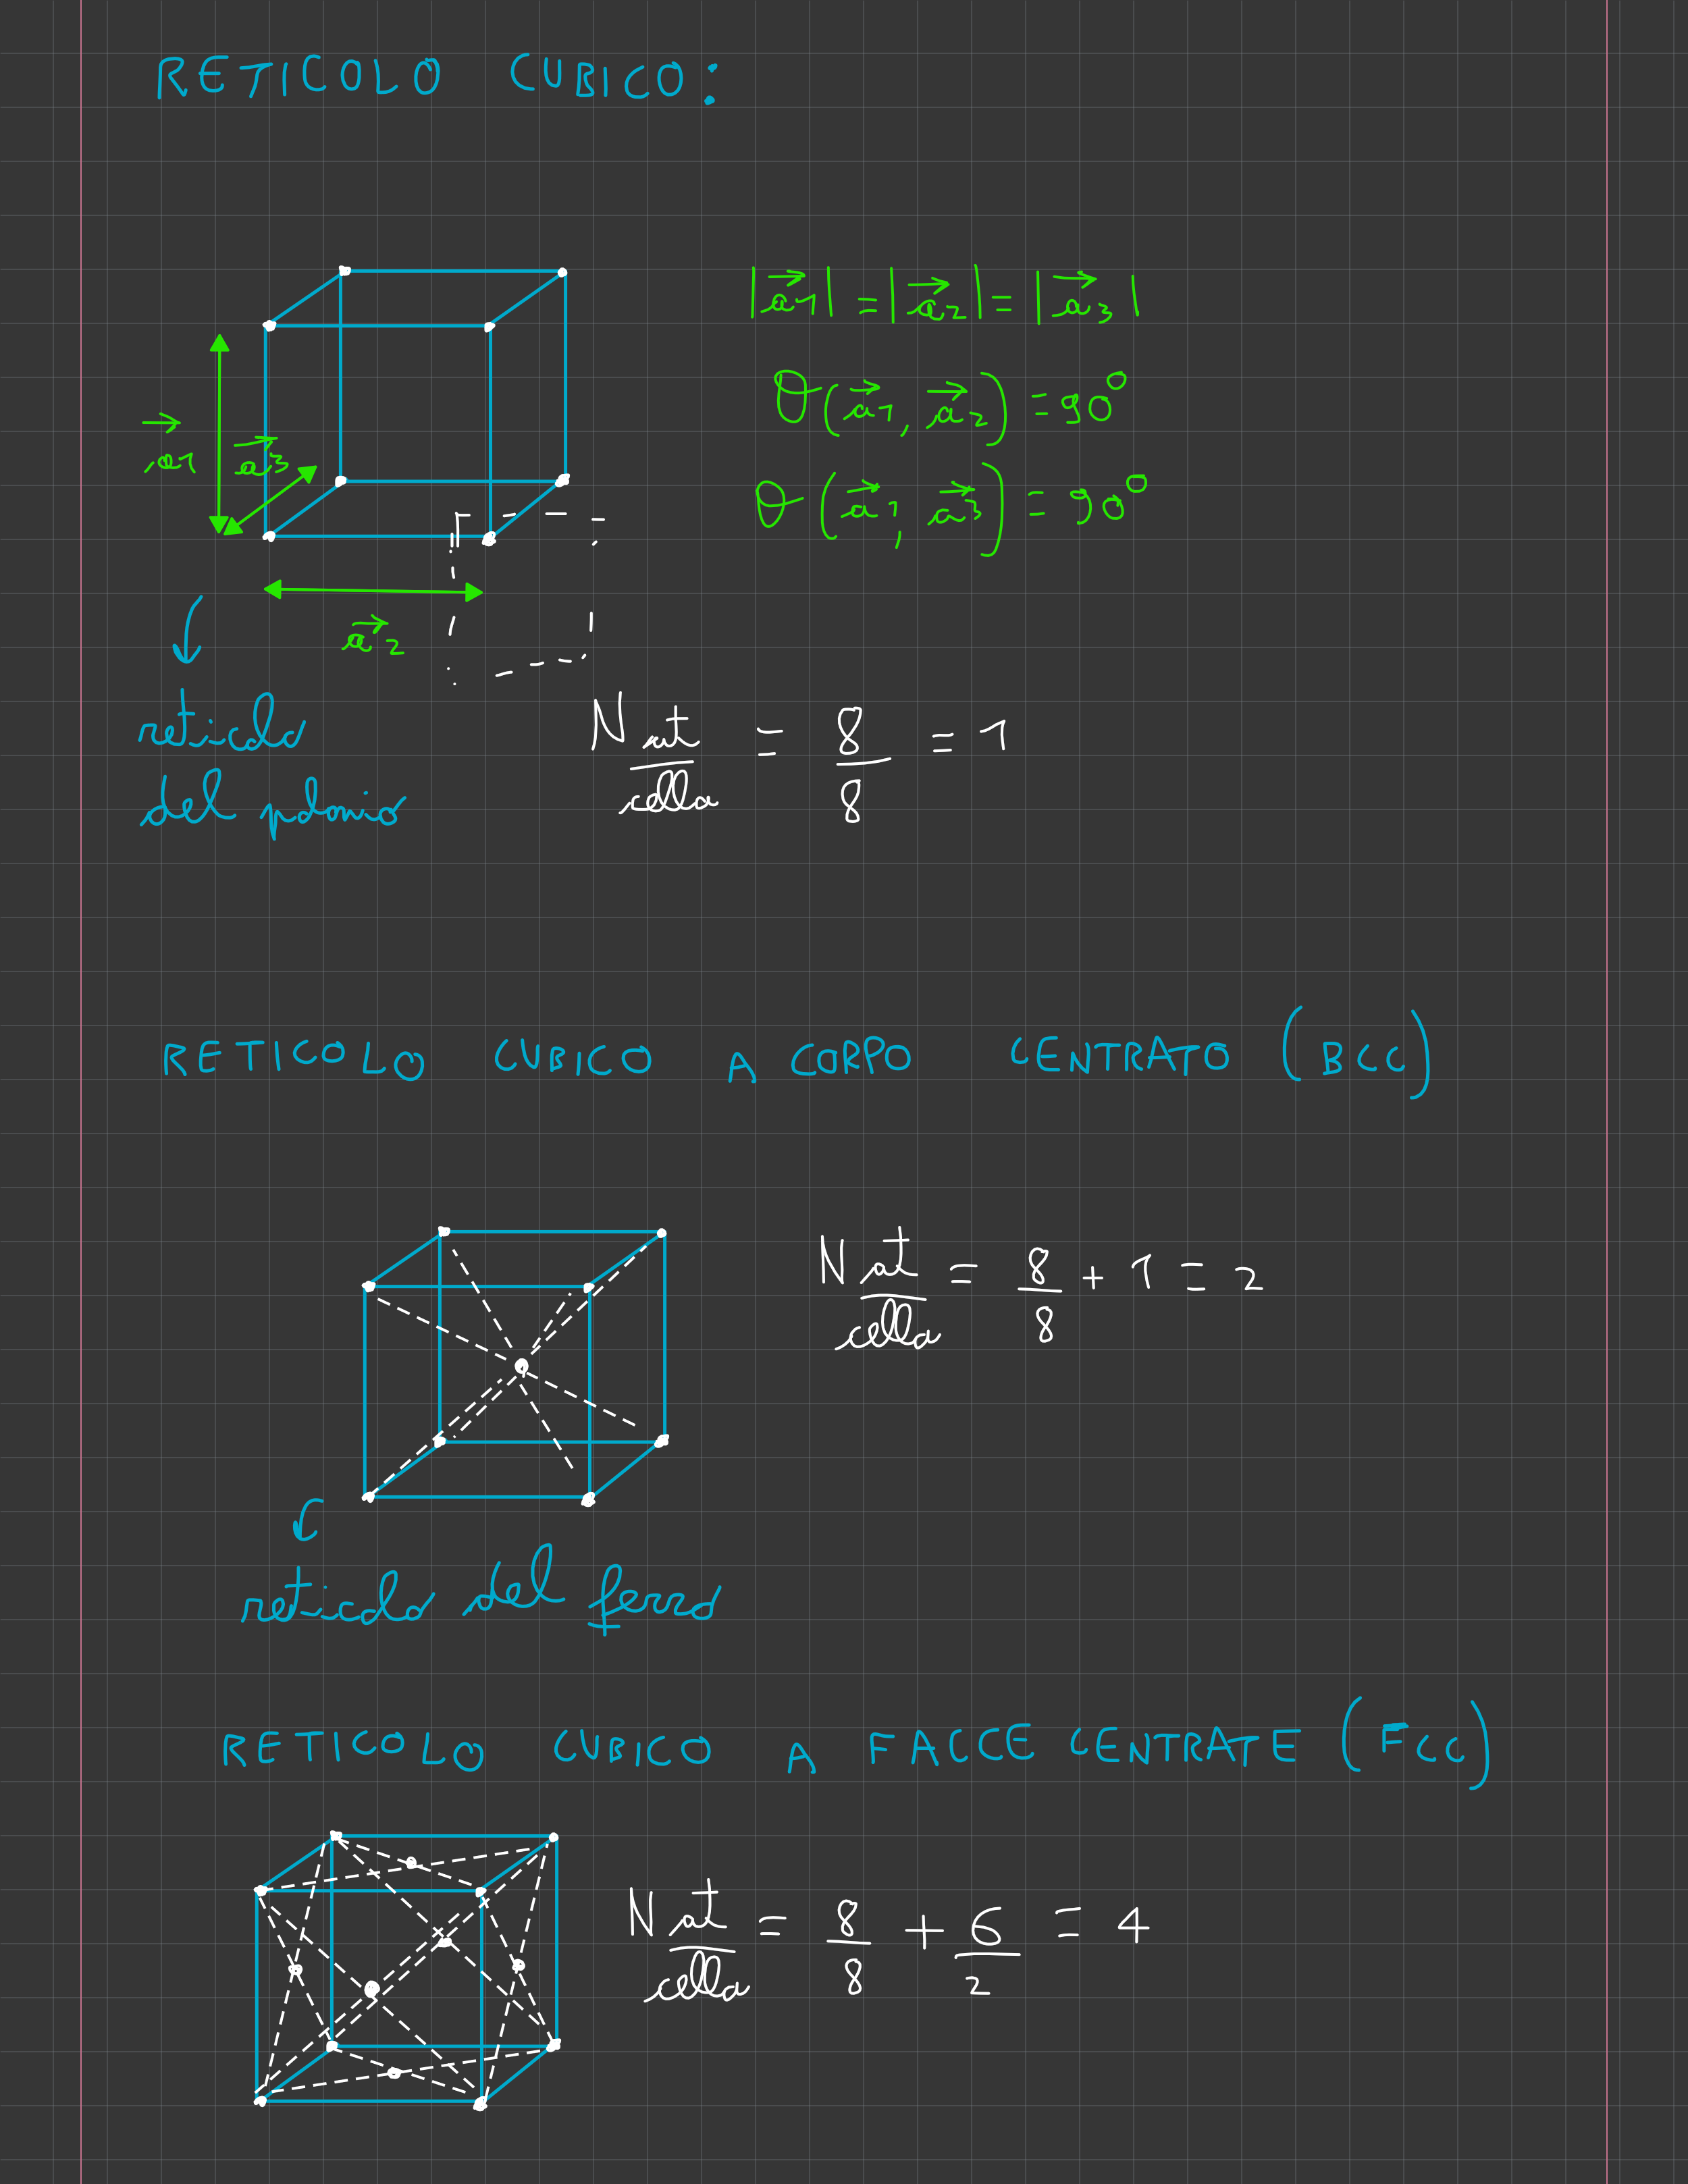 RETICOLO CUBICO:
|a⃗1| = |a⃗2| = |a⃗3|
θ(a⃗1, a⃗2) = 90°
a⃗1 a⃗3
θ(a⃗1, a⃗3) = 90°
a⃗2
reticolo
del polonio
N at/cella = 8/8 = 1
RETICOLO CUBICO A CORPO CENTRATO (BCC)
N at/cella = 8/8 + 1 = 2
reticolo del ferro
RETICOLO CUBICO A FACCE CENTRATE (FCC)
N at/cella = 8/8 + 6/2 = 4